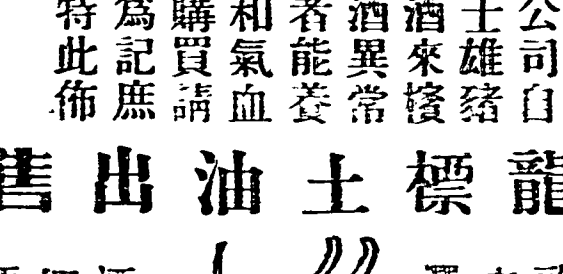 公司自
士雄豬
酒來
酒異常
者能養
和氣血
購買請
為記庶
特此佈
龍標土油出售